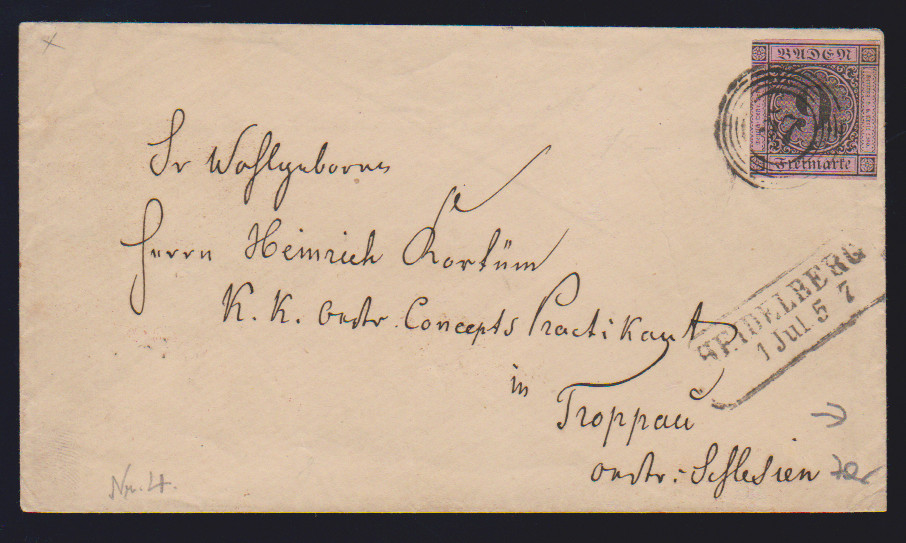 BADEN
9
Freimarke
Sr Wohlgeboren
Herrn Heinrich Kortüm
K. K. oestr. Concepts Practikant
in
Troppau
oestr: Schlesien
HEIDELBERG
1 Jul. 5 7
Nr. 4.